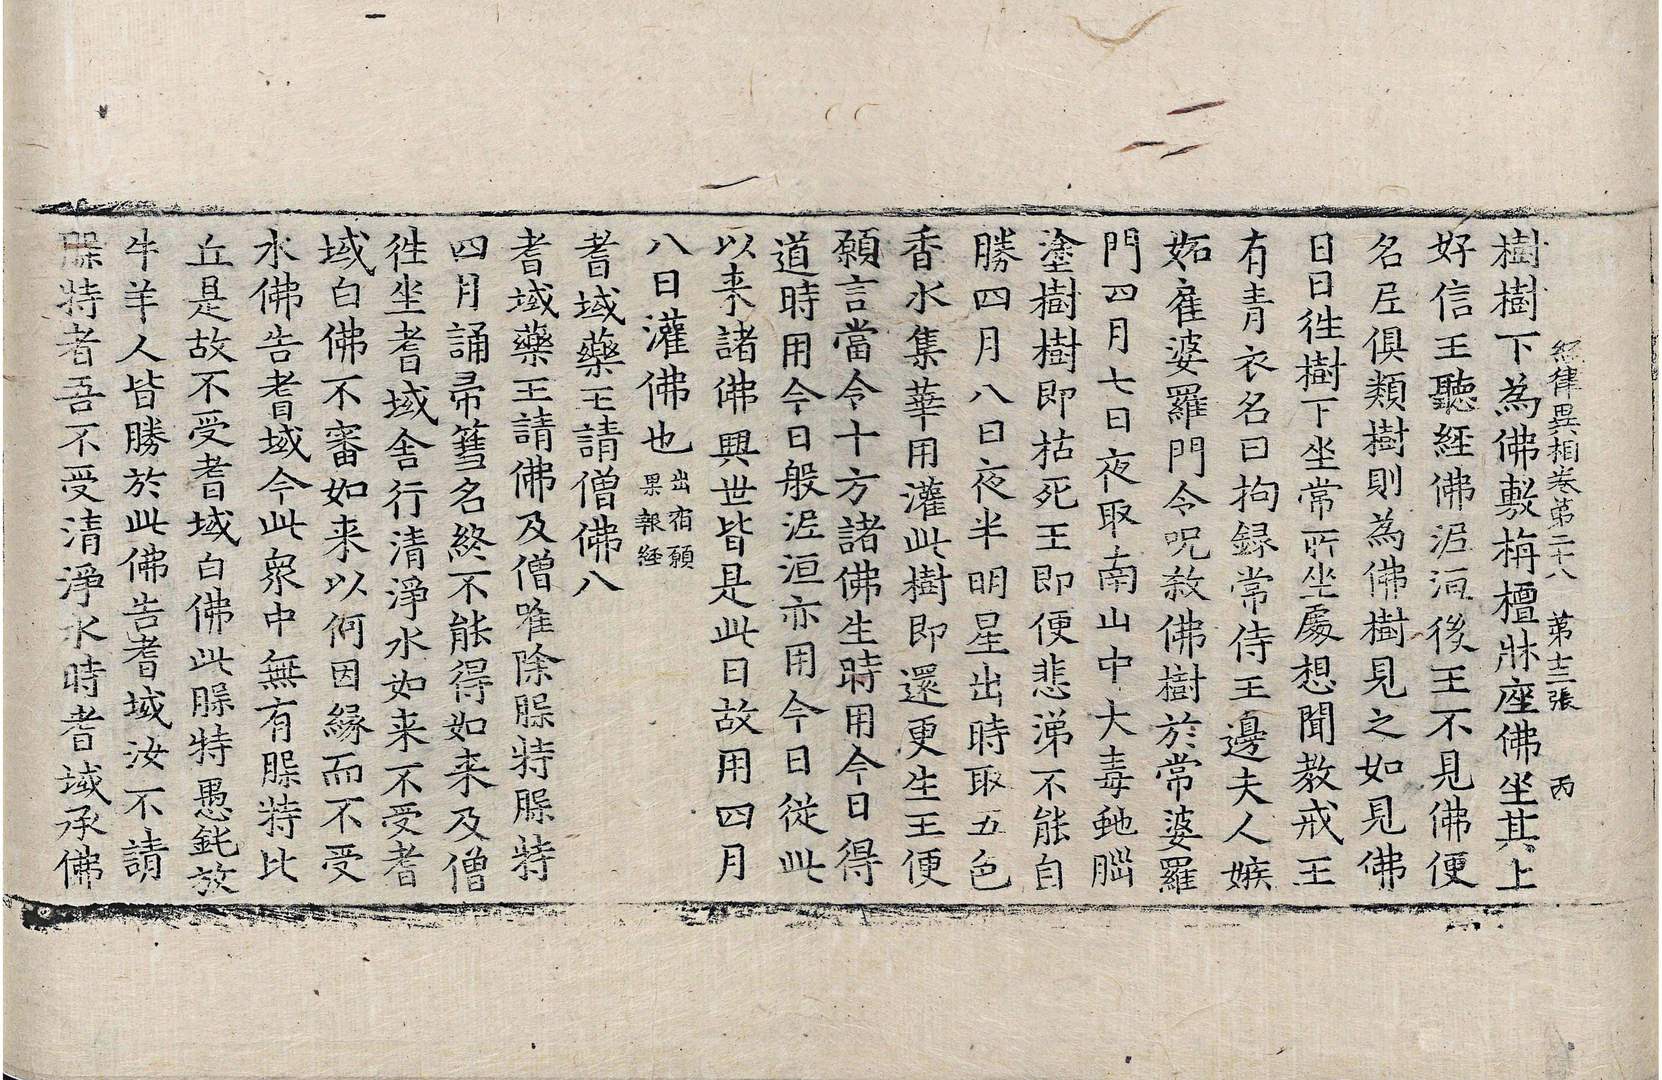 經律異相卷第二十八　第十三張　丙
樹樹下為佛敷栴檀牀座佛坐其上
好信王聽經佛泥洹後王不見佛便
名居俱類樹則為佛樹見之如見佛
日日往樹下坐常所坐處想聞教戒王
有青衣名曰拘録常侍王邊夫人嫉
妬雇婆羅門令呪殺佛樹於常婆羅
門四月七日夜取南山中大毒虵腦
塗樹樹即枯死王即便悲涕不能自
勝四月八日夜半明星出時取五色
香水集華用灌此樹樹即還更生王便
願言當令十方諸佛生時用今日得
道時用今日般泥洹亦用今日從此
以来諸佛興世皆是此日故用四月
八日灌佛也出宿願果報経
耆域藥王請僧佛八
耆域藥王請佛及僧唯除䐈特䐈特
四月誦帚篲名終不能得如来及僧
徃坐耆域舍行清淨水如来不受耆
域白佛不審如来以何因緣而不受
水佛告耆域今此衆中無有䐈特比
丘是故不受耆域白佛此䐈特愚鈍放
牛羊人皆勝於此佛告耆域汝不請
䐈特者吾不受清淨水時耆域承佛